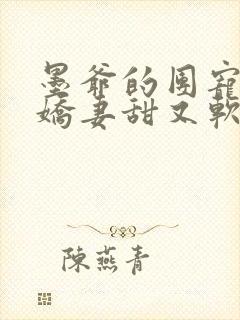 墨爺的團寵
嬌妻甜又軟
陳燕青